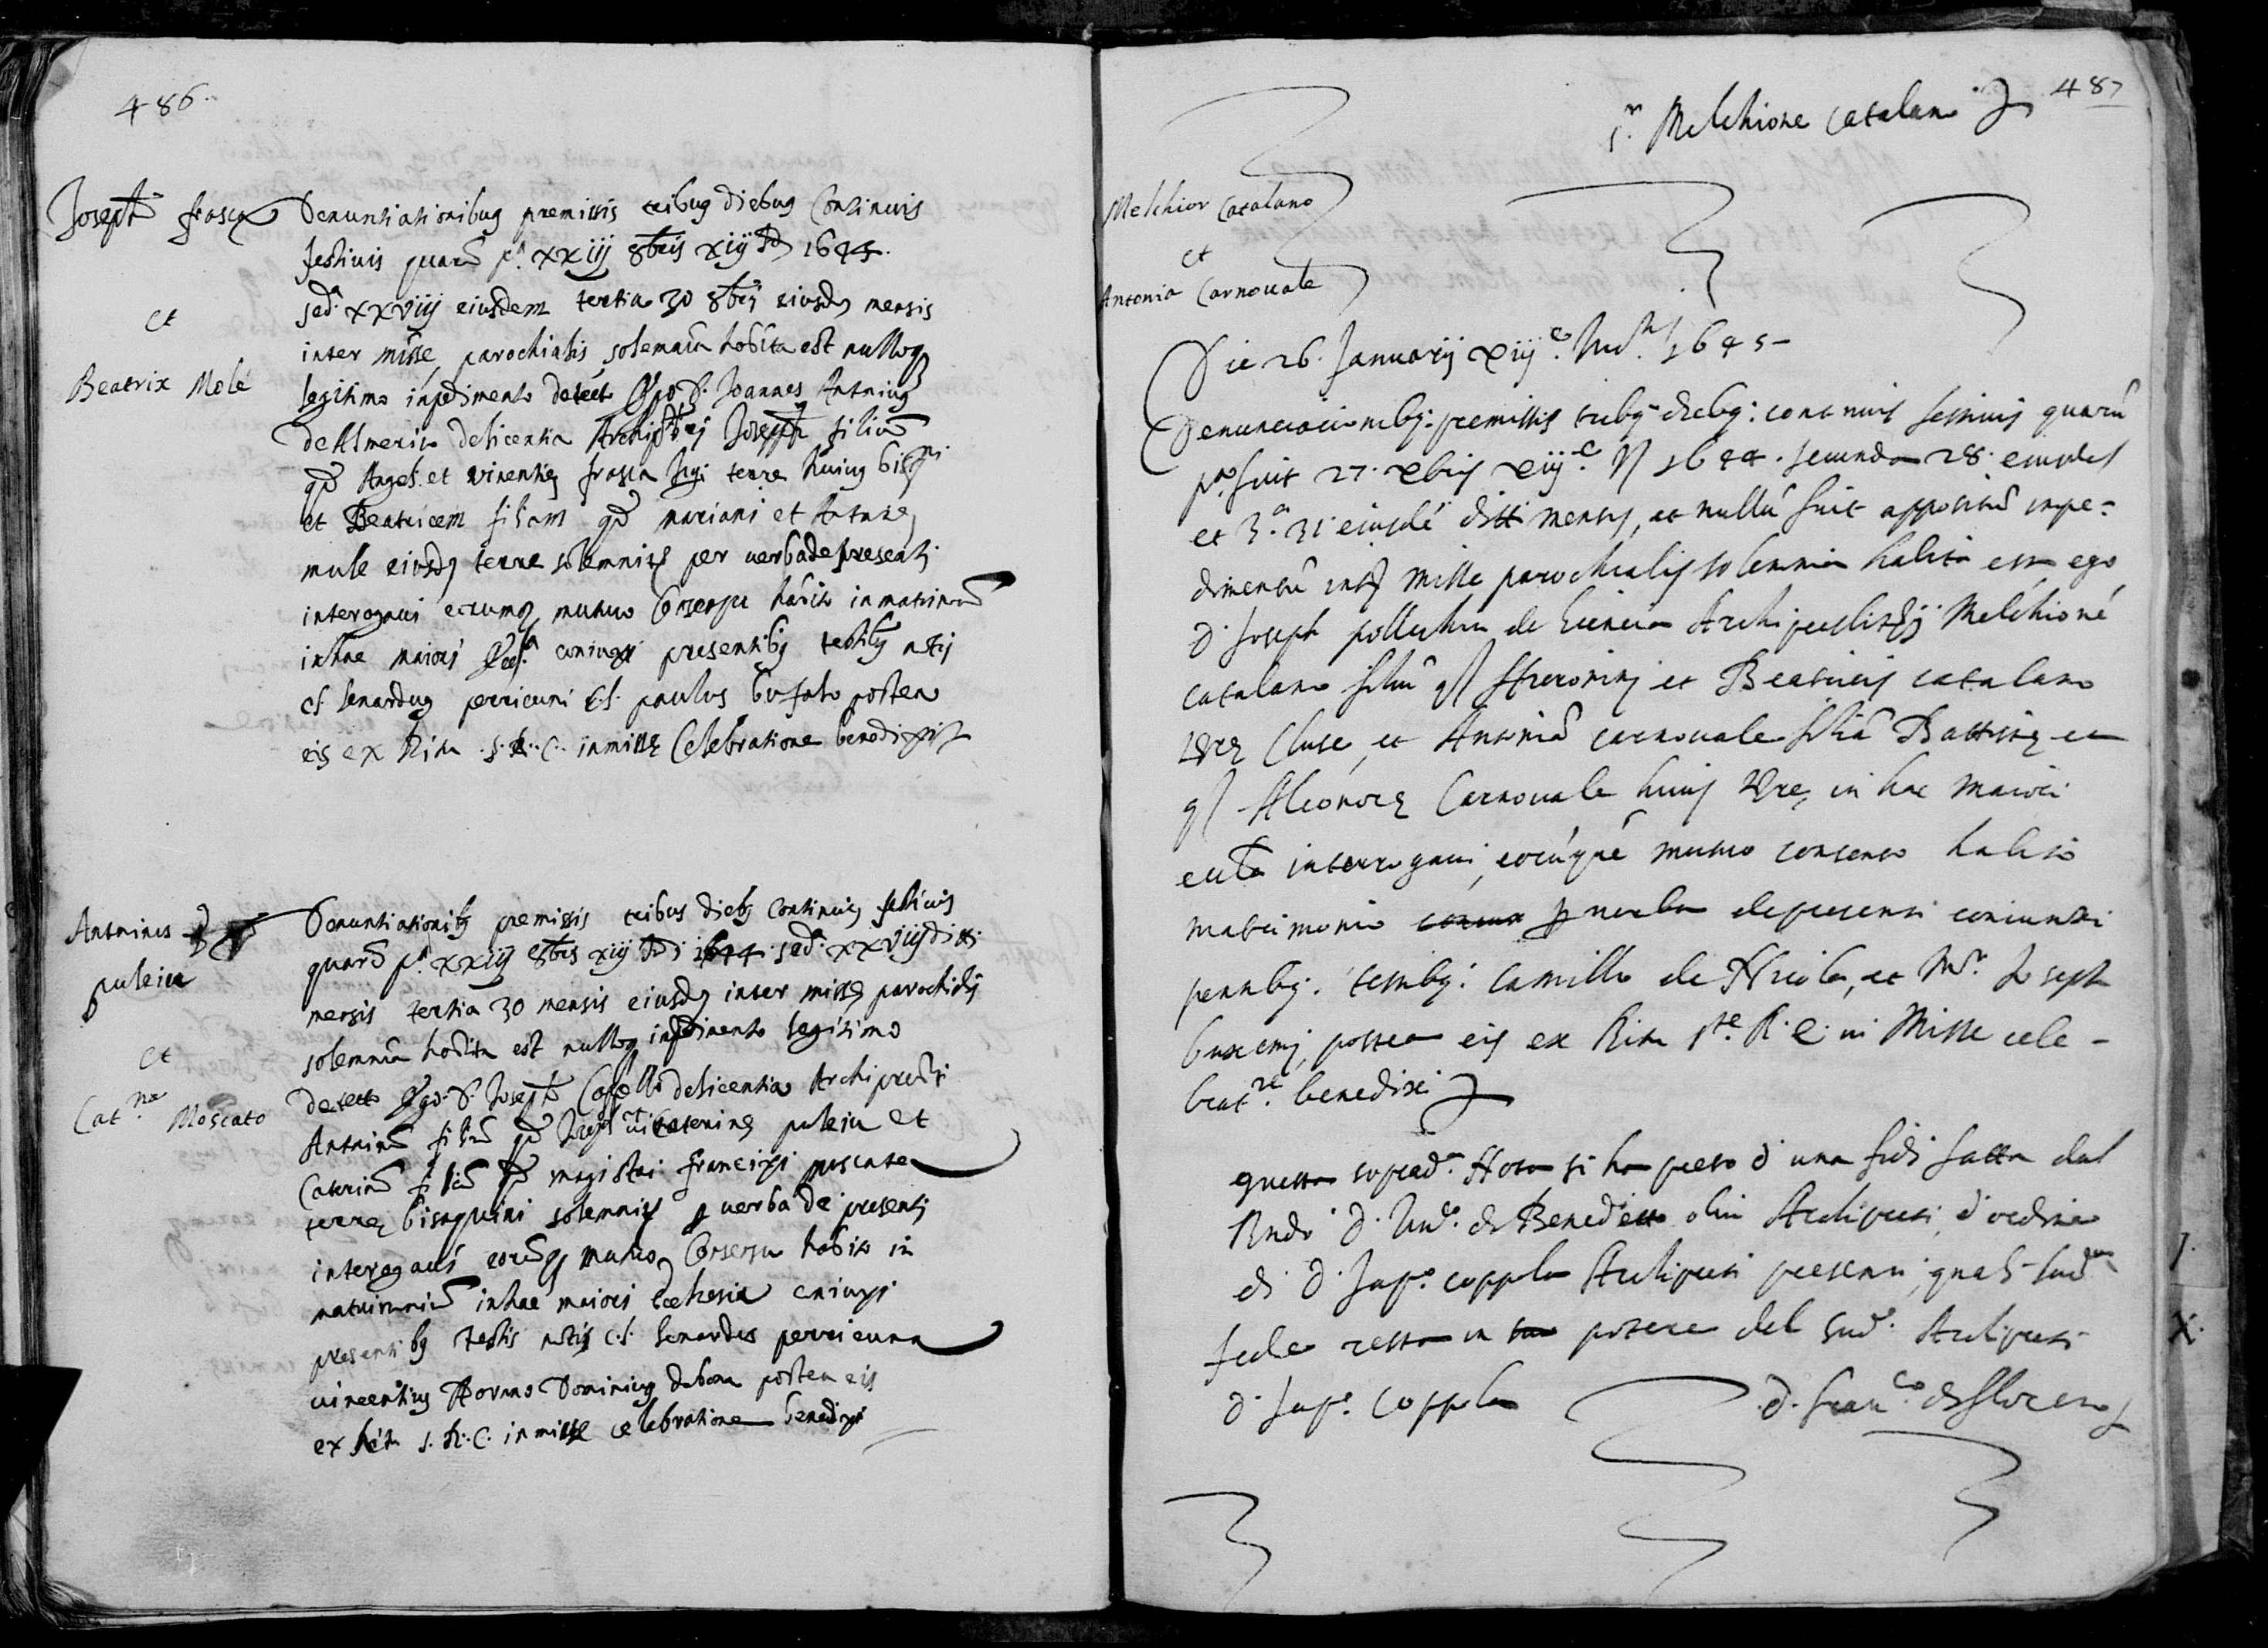 486.
Joseph frasca
et
Beatrix Molè
Denuntiationibus premissis tribus diebus Continuis
festiuis quarũ pª. xxiij 8bris xiij Ind 1644.
sedª. xxviiij eiusdem tertia 30 8bris eiusdẽ mensis
inter misse parochialis solemnia habita est nulloq
legitimo inpedimento detecto Ego D. Joannes Antonius
de Almerico de licentia Archipbri Joseph filiũ
qd Angeli et vincentie frasca huius terre huius bisqni
et Beatricem filiam qd mariani et Antonie
mule eiusdẽ terre solemniter per uerba de presenti
interogaui eorumq mutuo Consensu habito in matrimoniũ
in hac maiori Eccla coniunxi presentibus testibus notis
cl. lenardus perricuni Cl. paulus bufalo postea
eis ex Ritu .S.R.C. in misse Celebratione benedixit
Antonius
puleiu
et
Catna Moscato
Denuntiationibus premissis tribus diebus Continuis festiuis
quarũ pª. xxiij 8bris xiij Ind. 1644. sedª. xxviiij dicti
mensis tertia 30 mensis eiusdẽ inter misse parochialis
solemnia habita est nulloq inpedimento legitimo
detecto Ego. D. Joseph Coppolla de licentia Archipresbiteri
Antoniũ filiũ qd et Caterine puleiu et
Caterinã filiã qd magistri francisci muscato
terre bisaquini solemniter p uerba de presenti
interogaui eorũq mutuo Consensu habito in
matrimoniũ in hac maiori Ecchesia coniunxi
presentibus testis notis c.l. lenardus perricuna
uincentius Dominicus postea eis
ex Ritu S.R.C. in misse celebratione benedixi
487
Melchiore catalano
Melchior Catalano
et
Antonia Carnouale
Die 26. Januarij xiijª. Ind. 1645-
Denunciacionibus: premissis tribus diebus: continuis festiuis quarũ
pª fuit 27. xbris xiij 1644. secunda 28. eiusdẽ
et 3.ª 31 eiusdẽ dicti mensis, et nullũ fuit appositũ inpe-
dimentũ inter misse parochialis solemnia habita est ego
D. Joseph pollichino de licencia Archipresbiteri Melchionẽ
catalano filiũ qd Hieronimi et Beatricis catalano
terre Cluse, et Antoniã carnouale filiã Battiste et
qd Aleonore Carnouale huius terre, in hac maiori
eccla interrogaui, eorũque mutuo consenso habito
matrimonio p uerba de presenti coniunxi
pentibus: testibus: Camillo de Aricola, et Mr. Joseph
buxemi, postea eis ex Ritu Ste. R. E. in Misse cele-
bratne. benedixi
questa sopradª. Nota si ha preso d'una fidi fatta dal
Rndo D. Indo. di Benedetto olim Archipreti, d'ordine
di D. Juso. coppola Archipreti presenti, quali sudª
fede resta in potere del Sudo. Archipreti
D. Juso. Coppola D. Franco. di Florena